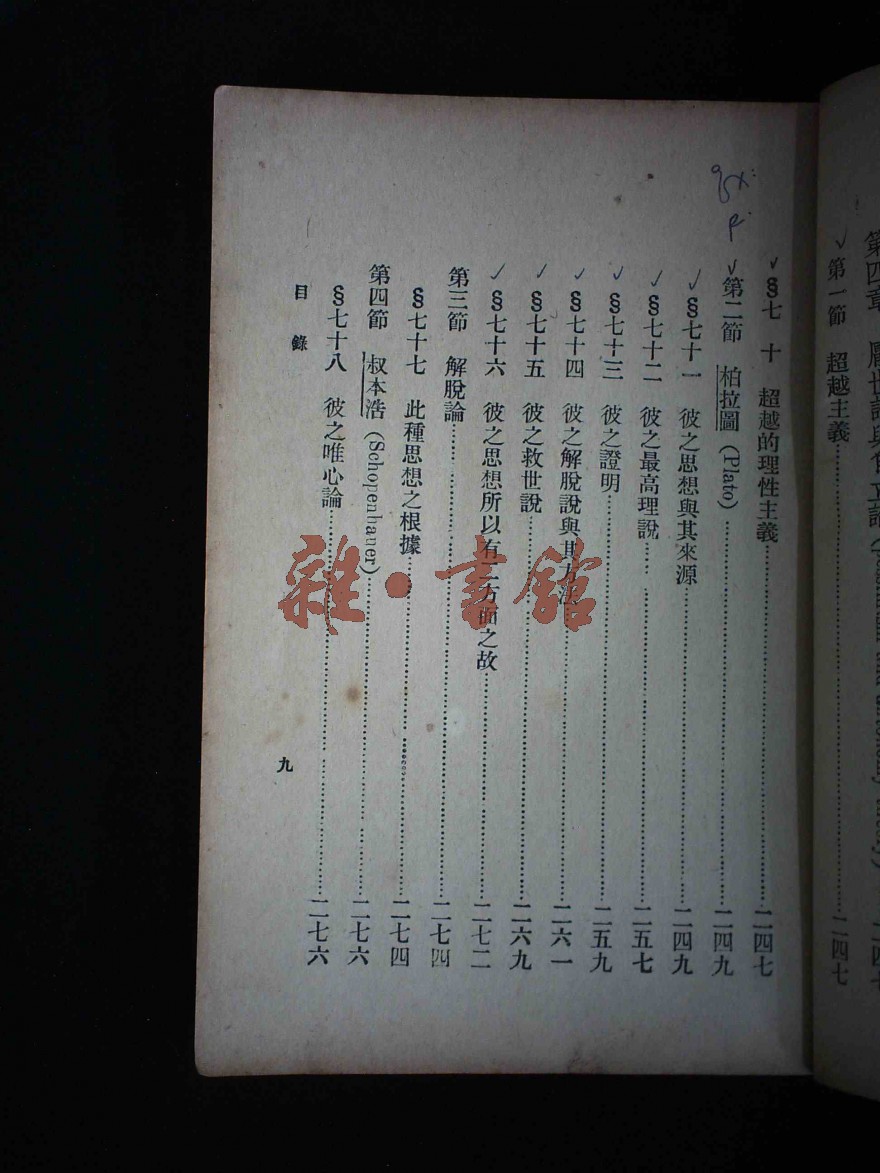 第四章 厭世論與自立論
第一節 超越主義……二四七
§七十 超越的理性主義……二四七
第二節 柏拉圖(Plato)……二四九
§七十一 彼之思想與其來源……二四九
§七十二 彼之最高理說……二五七
§七十三 彼之證明……二五九
§七十四 彼之解脫說與其方法……二六一
§七十五 彼之救世說……二六九
§七十六 彼之思想所以有二方面之故……二七二
第三節 解脫論……二七四
§七十七 此種思想之根據……二七四
第四節 叔本浩(Schopenhauer)……二七六
§七十八 彼之唯心論……二七六
目錄
九
雜·書館